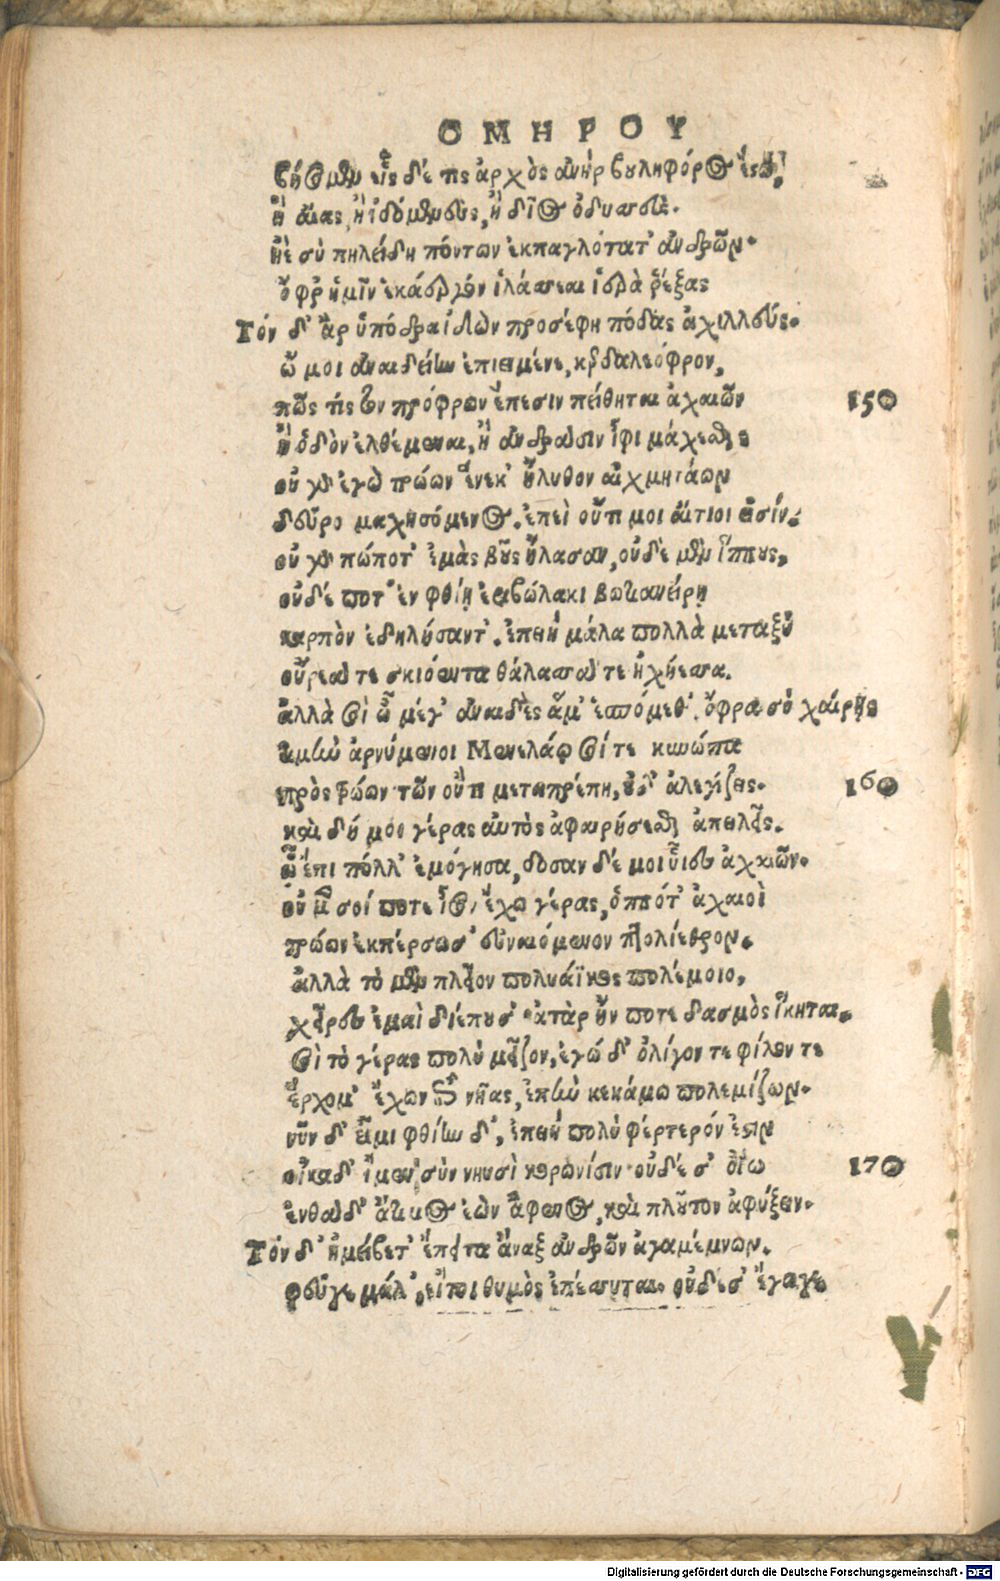 ΟΜΗΡΟΥ
βήσομεν εἷς δέ τις ἀρχὸς ἀνὴρ βουληφόρος ἔστω,
ἢ αἴας, ἢ ἰδομενεὺς, ἢ δῖος ὀδυσσεύς.
ἠὲ σὺ πηλείδη πάντων ἐκπαγλότατ' ἀνδρῶν.
ὄφρ' ἡμῖν ἑκάεργον ἱλάσσεαι ἱερὰ ῥέξας
Τόν δ' ἂρ ὑπόδρα ἰδὼν προσέφη πόδας ἀχιλλεύς.
ὤ μοι ἀναιδείην ἐπιειμένε, κερδαλεόφρον,
πῶς τίς τοι πρόφρων ἔπεσιν πείθηται ἀχαιῶν 150
ἢ ὁδὸν ἐλθέμεναι, ἢ ἀνδράσιν ἶφι μάχεσθαι;
οὐ γὰρ ἐγὼ τρώων ἕνεκ' ἤλυθον αἰχμητάων
δεῦρο μαχησόμενος. ἐπεὶ οὔτι μοι αἴτιοι εἰσίν.
οὐ γὰρ πώποτ' ἐμὰς βοῦς ἤλασαν, οὐδὲ μὲν ἵππους,
οὐδέ ποτ' ἐν φθίῃ ἐριβώλακι βωτιανείρῃ
καρπὸν ἐδηλήσαντ'. ἐπειὴ μάλα πολλὰ μεταξὺ
οὔρεά τε σκιόεντα θάλασσά τε ἠχήεσσα.
ἀλλὰ σοὶ ὦ μέγ' ἀναιδὲς ἅμ' ἑσπόμεθ'. ὄφρα σὺ χαίρῃς
τιμὴν ἀρνύμενοι Μενελάῳ σοί τε κυνῶπα
πρὸς τρώων τῶν οὔτι μετατρέπῃ, οὐδ' ἀλεγίζεις. 160
καὶ δή μοι γέρας αὐτὸς ἀφαιρήσεσθαι ἀπειλεῖς.
ᾧ ἔπι πόλλ' ἐμόγησα, δόσαν δέ μοι υἷες ἀχαιῶν.
οὐ μὲν σοί ποτε ἶσον ἔχω γέρας, ὁππότ' ἀχαιοὶ
τρώων ἐκπέρσωσ' εὐναιόμενον πτολίεθρον.
ἀλλὰ τὸ μὲν πλεῖον πολυάϊκος πολέμοιο,
χεῖρες ἐμαὶ διέπουσ' ἀτὰρ ἤν ποτε δασμὸς ἵκηται.
σοὶ τὸ γέρας πολὺ μεῖζον, ἐγώ δ' ὀλίγον τε φίλον τε
ἔρχομ' ἔχων ἐπὶ νῆας, ἐπὴν κεκάμω πολεμίζων.
νῦν δ' εἶμι φθίην δ', ἐπειὴ πολὺ φέρτερόν ἐστιν
οἴκαδ' ἴμεν σὺν νηυσὶ κορωνίσιν· οὐδέ σ' ὀΐω 170
ἐνθάδ' ἄτιμος ἐὼν ἄφενος, καὶ πλοῦτον ἀφύξειν.
Τόν δ' ἠμείβετ' ἔπειτα ἄναξ ἀνδρῶν ἀγαμέμνων.
φεῦγε μάλ', εἴ τοι θυμὸς ἐπέσσυται. οὐδέ σ' ἔγωγε
Digitalisierung gefördert durch die Deutsche Forschungsgemeinschaft - DFG